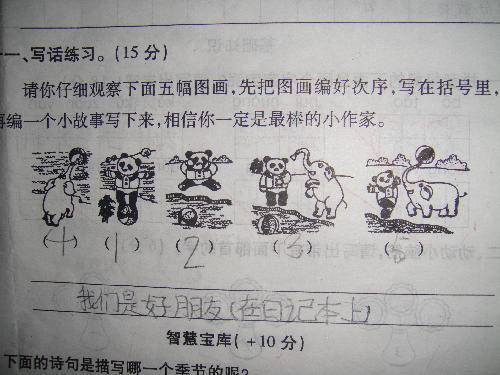 一、写话练习。(15分)
请你仔细观察下面五幅图画,先把图画编好次序,写在括号里,
再编一个小故事写下来,相信你一定是最棒的小作家。
(4) (1) (2) (3) (5)
我们是好朋友(在日记本上)
智慧宝库(+10分)
下面的诗句是描写哪一个季节的呢?